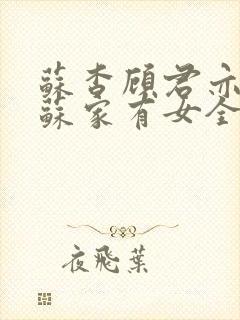 蘇杳顧君亦
蘇家有女全
夜飛葉